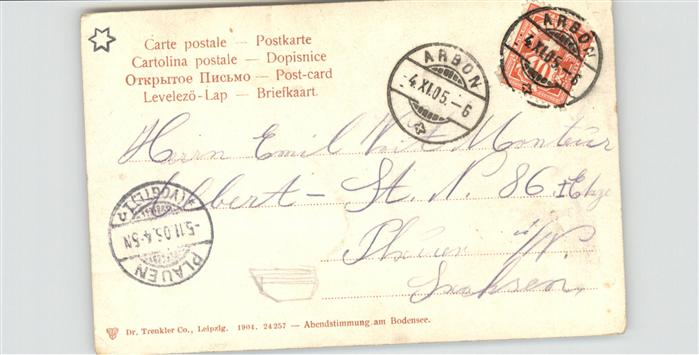 Carte postale — Postkarte
Cartolina postale — Dopisnice
Открытое Письмо — Post-card
Levelező-Lap — Briefkaart.
ARBON
4.XI.05.–6
ARBON
4.XI.05.–6
Herrn Emil Veit Monteur
Albert – St. N. 86 I Etage
Plauen i/V.
Sachsen.
PLAUEN (VOGTL)
-5.11.05.4-5N
Dr. Trenkler Co., Leipzig. 1904. 24257 — Abendstimmung am Bodensee.